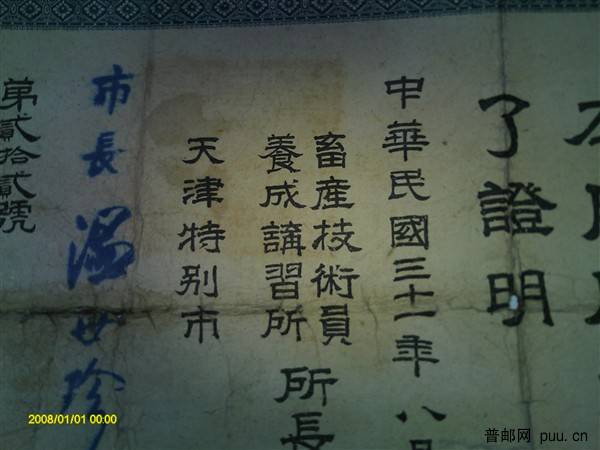 了證明
中華民國三十一年八月
畜産技術員
養成講習所
所長
天津特別市
市長 溫世珍
第貳拾貳號
2008/01/01 00:00
普邮网 puu.cn